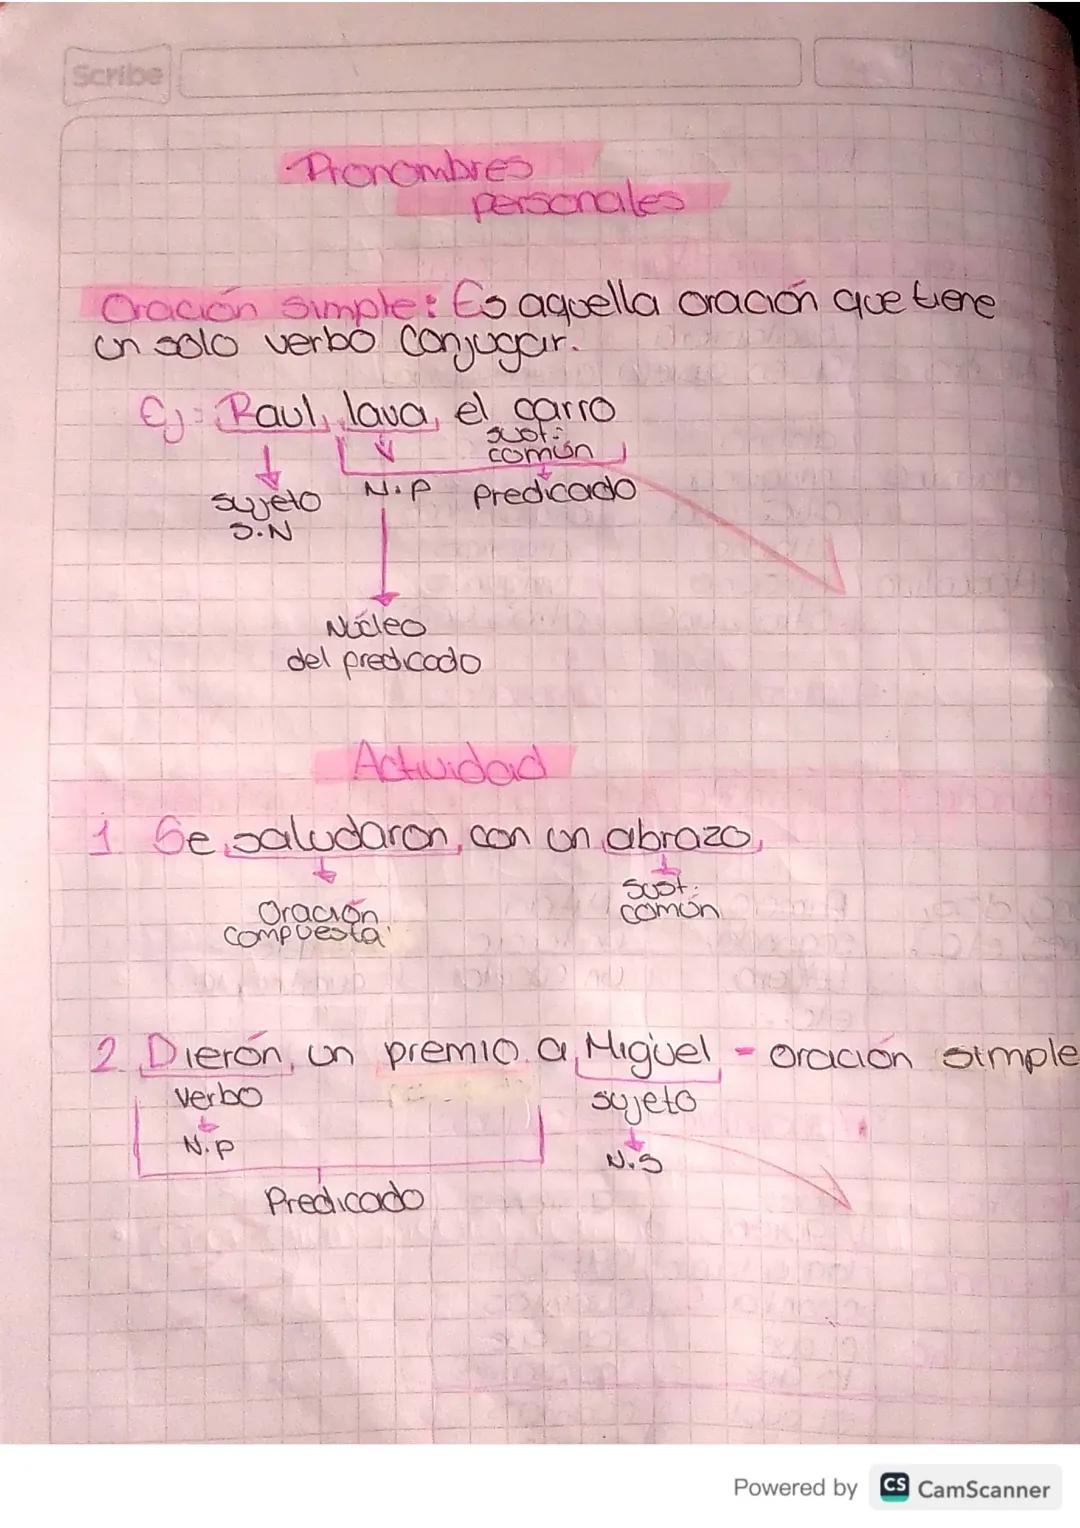 Scribe
Pronombres
personales
Oración simple: Es aquella oración que tiene
un solo verbo conjugar.
Ej: Raul, lava, el carro
sust.
común
sujeto N.P Predicado
S.N
Núcleo
del predicado
Actividad
1 Se saludaron, con un abrazo,
Oración
compuesta
Sust.
común
2 Dierón, un premio a Miguel - oración simple
verbo sujeto
N.P N.S
Predicado
Powered by CS CamScanner